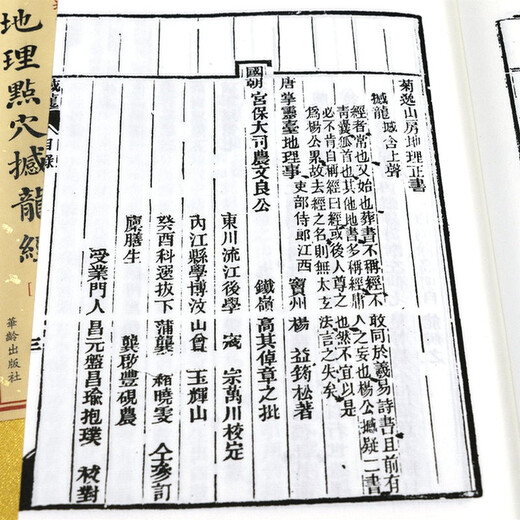 菊逸山房地理正書
撼龍 城含上聲
經者常也又始也葬書不稱經不敢同於羲易詩書且前有
青囊狐首也其他地書多稱經庸人之妄也楊公撼疑二書
必不肯自稱經曰經或後人尊之也然不宜以是
為楊公累故去經之名則無太玄法言之失矣
唐掌靈臺地理事 吏部侍郎江西 竇州楊 益筠松著
國朝宮保大司農文良公 鐵嶺高其倬章之批
東川流江後學 寇 宗萬川校定
內江縣學博汶山 玉輝山
癸酉科選拔下蒲龔 曉雯 仝參訂
廩膳生 龔啟豐硯農
受業門人昌元盤昌瑜抱璞 校對
撼龍 目錄
三
地理點穴撼龍經
華齡出版社